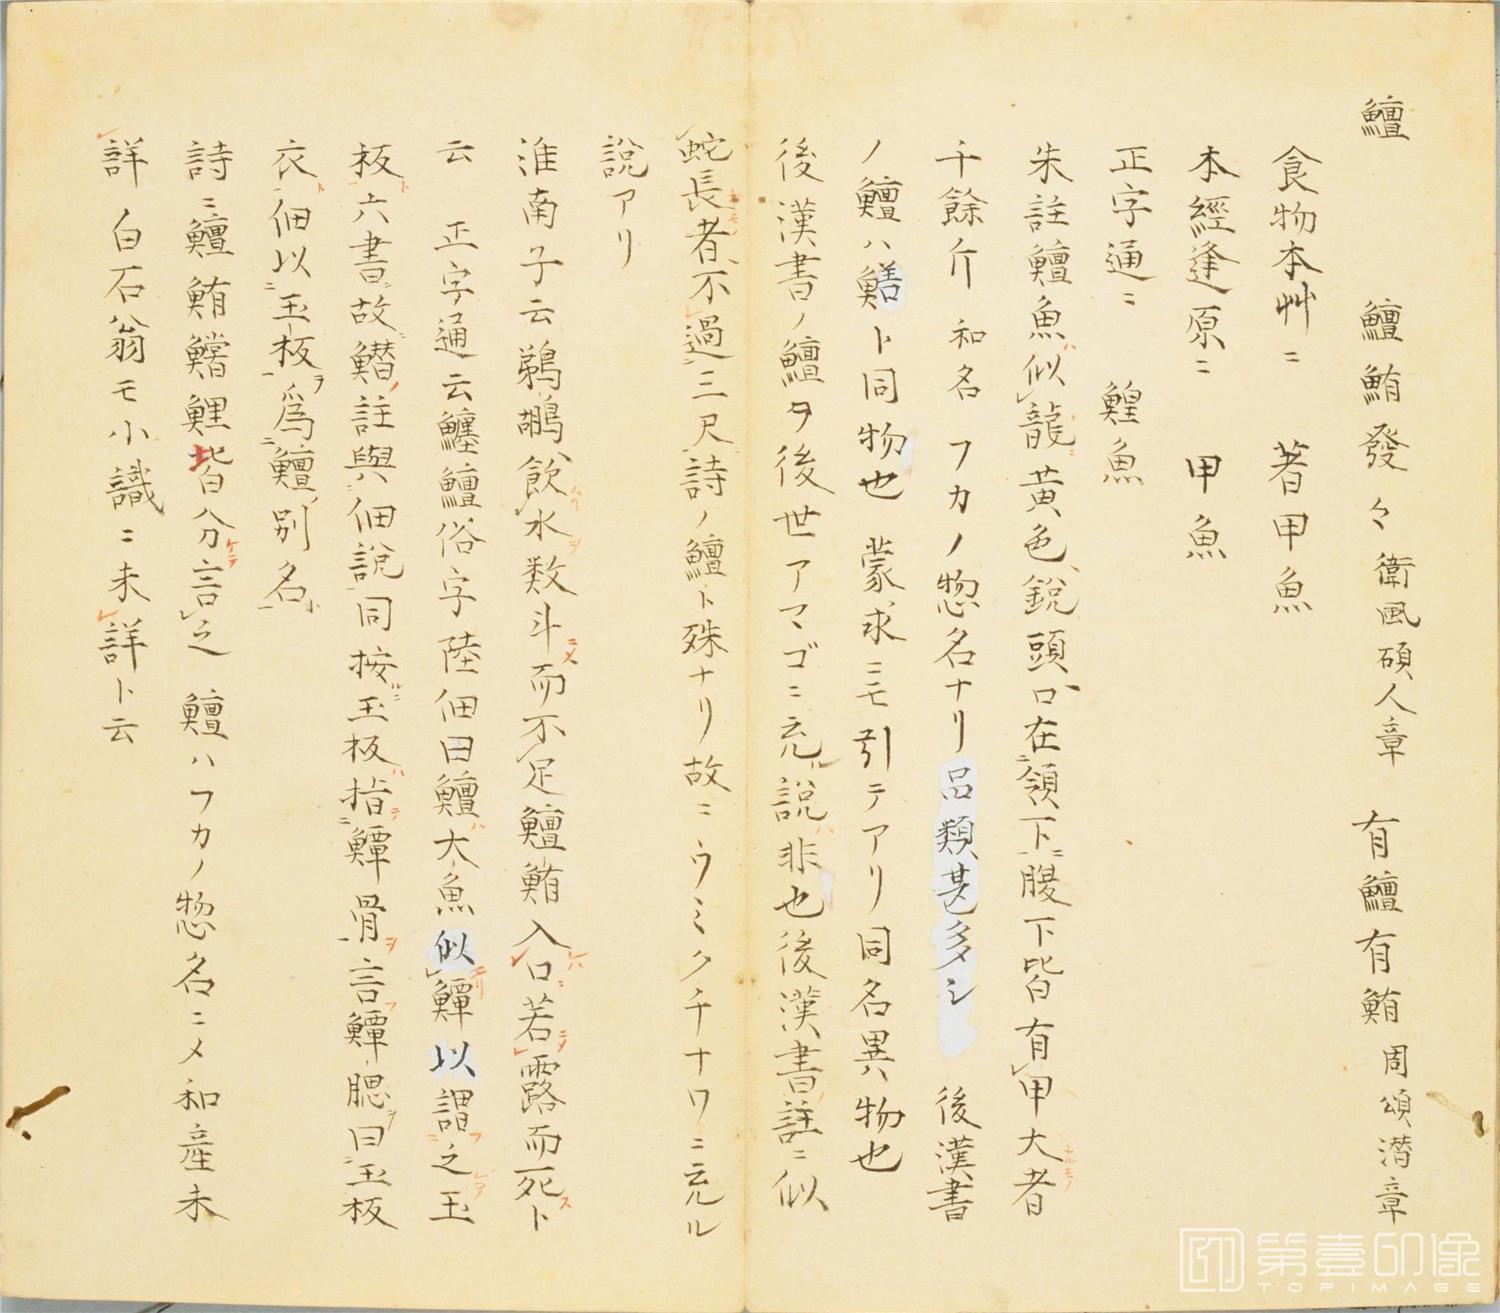 鱣　鱣鮪發々 衛風碩人章　有鱣有鮪 周頌潜章
食物本艸ニ　著甲魚
本經逢原ニ　甲魚
正字通ニ　鰉魚
朱註鱣魚ハ似龍黄色鋭頭口在頷下腹下皆有甲大者
千餘斤　和名フカノ惣名ナリ品類甚多シ　後漢書
ノ鱣ハ鱔ト同物也　蒙求ニモ引テアリ同名異物也
後漢書ノ鱣ヲ後世アマゴニ充ル説ハ非也後漢書註ニ似
蛇長者不過三尺詩ノ鱣ト殊ナリ故ニウミクチナワニ充ル
説アリ
淮南子云鵜鶘飲水数斗而不足鱣鮪入口若露而死ト
云　正字通云鱷鱣俗字陸佃曰鱣ハ大魚似鱏以謂之玉
板六書故鱣註與佃説同按玉板ハ指鱏骨言鱏腮曰玉板
衣佃以玉板ヲ爲鱣別名
詩ニ鱣鮪鱨鯉皆分言之　鱣ハフカノ惣名ニメ和産未
詳　白石翁モ小識ニ未詳ト云
第壹印像
TOPIMAGE